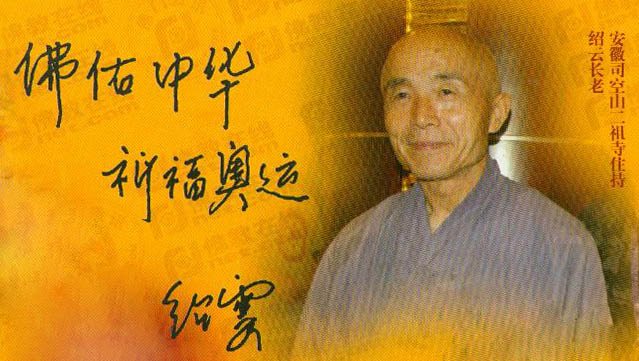 佛佑中华
祈福奥运
绍雲
安徽司空山二祖寺住持
绍云长老
佛教在线